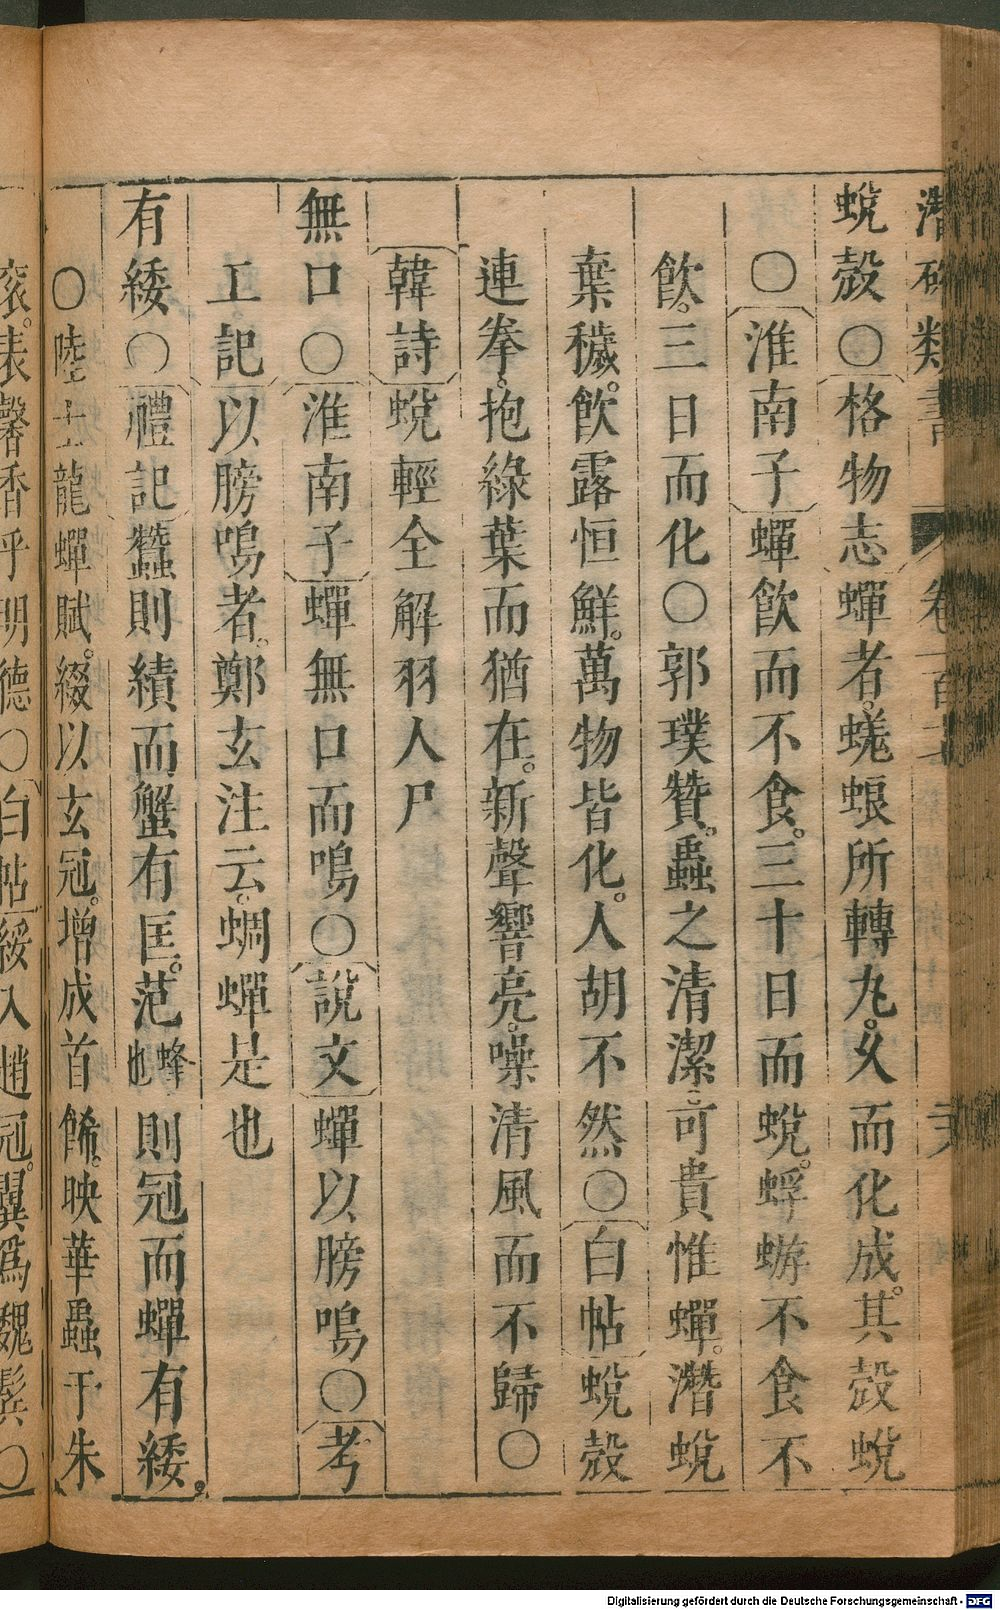 潛確類書 卷一百二
蛻殼〇格物志蟬者。蜣蜋所轉丸。久而化成。其殼蛻
〇淮南子蟬飮而不食。三十日而蛻。蜉蝣不食不
飮。三日而化〇郭璞贊。蟲之淸潔。可貴惟蟬。潛蛻
棄穢。飮露恒鮮。萬物皆化。人胡不然〇白帖蛻殼
連拳。抱綠葉而猶在。新聲響亮。噪淸風而不歸〇
韓詩蛻輕全解羽人尸
無口〇淮南子蟬無口而鳴〇說文蟬以膀鳴〇考
工記以膀鳴者。鄭玄注云。蜩蟬是也
有緌〇禮記蠶則績而蟹有匡。范蜂也則冠而蟬有緌。
〇陸士龍蟬賦。綴以玄冠。增成首餙。映華蟲于朱
衮。表馨香乎明德〇白帖緌入趙冠。翼爲魏鬓〇
Digitalisierung gefördert durch die Deutsche Forschungsgemeinschaft - DFG